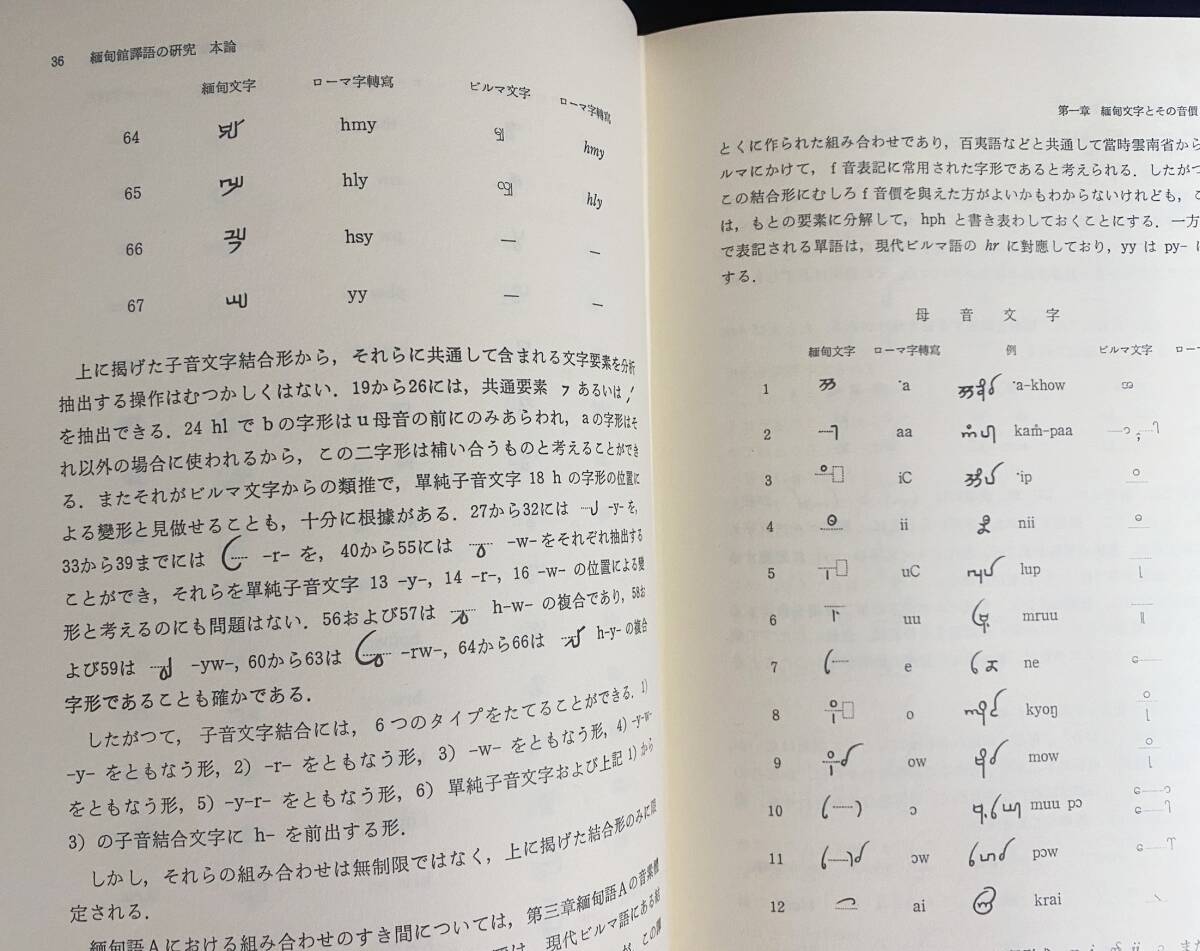 36 緬甸館譯語の研究 本論
緬甸文字 ローマ字轉寫 ビルマ文字 ローマ字轉寫
64 hmy hmy
65 hly hly
66 hsy — —
67 yy — —
上に掲げた子音文字結合形から，それらに共通して含まれる文字要素を分析
抽出する操作はむつかしくはない．19から26には，共通要素 あるいは
を抽出できる．24 hl でbの字形はu母音の前にのみあらわれ，aの字形はそ
れ以外の場合に使われるから，この二字形は補い合うものと考えることができ
る．またそれがビルマ文字からの類推で，單純子音文字 18 h の字形の位置に
よる變形と見做せることも，十分に根據がある．27から32には -y- を，
33から39までには -r- を，40から55には -w- をそれぞれ抽出する
ことができ，それらを單純子音文字 13 -y-，14 -r-，16 -w- の位置による變
形と考えるのにも問題はない．56および57は h-w- の複合であり，58お
よび59は -yw-，60から63は -rw-，64から66は h-y- の複合
字形であることも確かである．
したがつて，子音文字結合には，6つのタイプをたてることができる．1)
-y- をともなう形，2) -r- をともなう形，3) -w- をともなう形，4) -y-w-
をともなう形，5) -y-r- をともなう形，6) 單純子音文字および上記 1) から
3) の子音結合文字に h- を前出する形．
しかし，それらの組み合わせは無制限ではなく，上に掲げた結合形のみに限
定される．
緬甸語Aにおける組み合わせのすき間については，第三章緬甸語Aの音素體
は，現代ビルマ語にある結
第一章 緬甸文字とその音價
とくに作られた組み合わせであり，百夷語などと共通して當時雲南省から
ルマにかけて，f 音表記に常用された字形であると考えられる．したがつ
この結合形にむしろ f 音價を與えた方がよいかもわからないけれども，
は，もとの要素に分解して，hph と書き表わしておくことにする．一方
で表記される單語は，現代ビルマ語の hr に對應しており，yy は py- に
する．
母音文字
緬甸文字 ローマ字轉寫 例 ビルマ文字 ロー
1 ·a ·a-khow
2 aa kaṁ-paa
3 iC ·ip
4 ii nii
5 uC lup
6 uu mruu
7 e ne
8 o kyoŋ
9 ow mow
10 ɔ muu pɔ
11 ɔw pɔw
12 ai krai